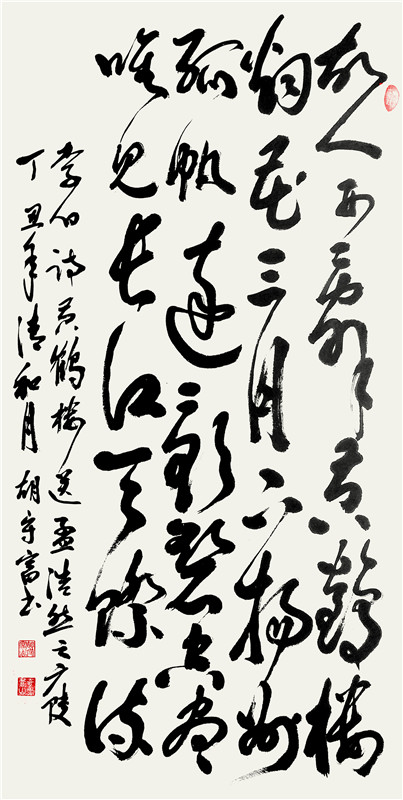 故人西辞黄鹤楼
烟花三月下扬州
孤帆远影碧空尽
唯见长江天际流
李白诗黄鹤楼送孟浩然之广陵
丁丑年清和月 胡守富书